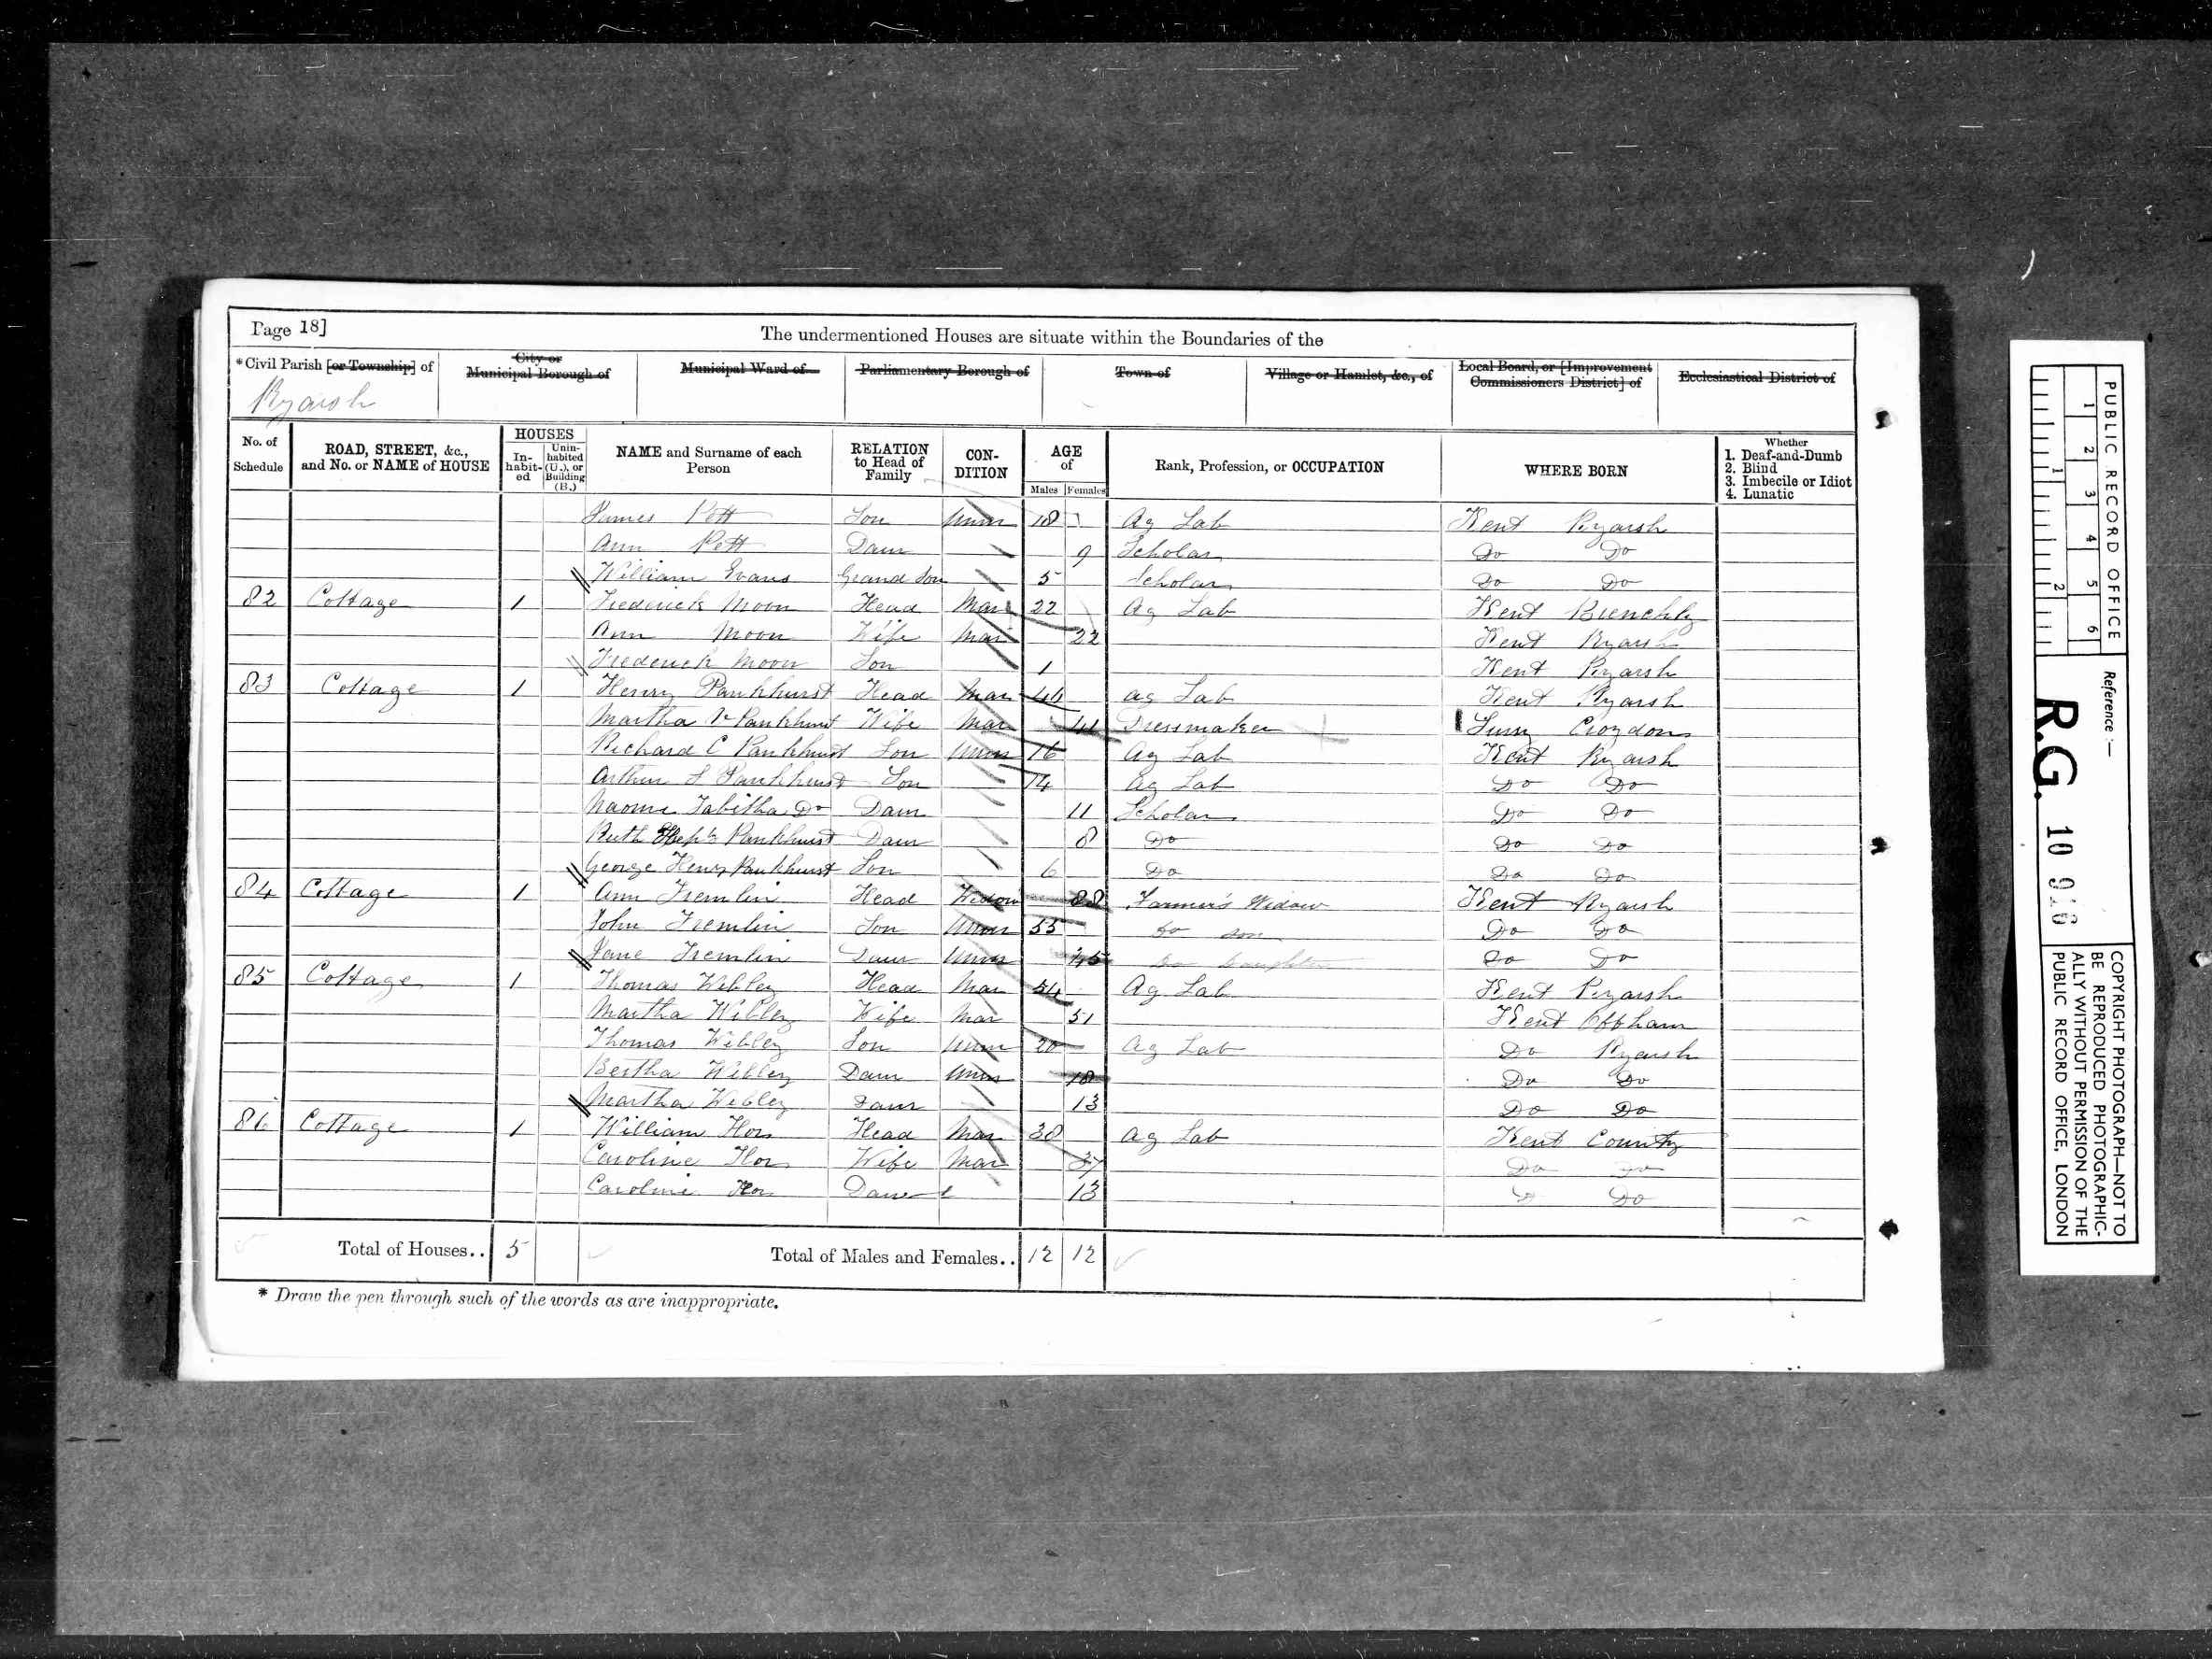 Page 18]
The undermentioned Houses are situate within the Boundaries of the
*Civil Parish [or Township] of
City or Municipal Borough of
Municipal Ward of
Parliamentary Borough of
Town of
Village or Hamlet, &c., of
Local Board, or [Improvement Commissioners District] of
Ecclesiastical District of
Ryarsh
No. of Schedule
ROAD, STREET, &c., and No. or NAME of HOUSE
HOUSES
In-habit-ed
Unin-habited (U.), or Building (B.)
NAME and Surname of each Person
RELATION to Head of Family
CON-DITION
AGE of
Males Females
Rank, Profession, or OCCUPATION
WHERE BORN
Whether
1. Deaf-and-Dumb
2. Blind
3. Imbecile or Idiot
4. Lunatic
James Pett Son Unm 18 Ag Lab Kent Ryarsh
Ann Pett Daur 9 Scholar Do Do
William Evans Grand Son 5 Scholar Do Do
82 Cottage 1 Frederick Moon Head Mar 22 Ag Lab Kent Brenchly
Ann Moon Wife Mar 22 Kent Ryarsh
Frederick Moon Son 1 Kent Ryarsh
83 Cottage 1 Henry Pankhurst Head Mar 46 Ag Lab Kent Ryarsh
Martha Pankhurst Wife Mar Dressmaker Surry Croydon
Richard C Pankhurst Son Unm 16 Ag Lab Kent Ryarsh
Arthur Pankhurst Son 14 Ag Lab Do Do
Naomi Tabitha Do Daur 11 Scholar Do Do
Ruth Pankhurst Daur 8 Do Do Do
George Henry Pankhurst Son 6 Do Do Do
84 Cottage 1 Ann Tremlin Head Widow 88 Farmer's Widow Kent Ryarsh
John Tremlin Son Unm 55 Do son Do Do
Jane Tremlin Daur Unm 45 Do Daughter Do Do
85 Cottage 1 Thomas Wibley Head Mar 54 Ag Lab Kent Ryarsh
Martha Wibley Wife Mar 51 Kent Offham
Thomas Wibley Son Unm 20 Ag Lab Do Ryarsh
Bertha Wibley Daur Unm 18 Do Do
Martha Wibley Daur 13 Do Do
86 Cottage 1 William Head Mar 38 Ag Lab Kent County
Caroline Wife Mar 37 Do Do
Caroline Daur 13 Do Do
Total of Houses.. 5 Total of Males and Females.. 12 12
* Draw the pen through such of the words as are inappropriate.
PUBLIC RECORD OFFICE
1 2 3 4 5 6
1 2
Reference :-
R.G. 10 910
COPYRIGHT PHOTOGRAPH—NOT TO
BE REPRODUCED PHOTOGRAPHIC-
ALLY WITHOUT PERMISSION OF THE
PUBLIC RECORD OFFICE, LONDON